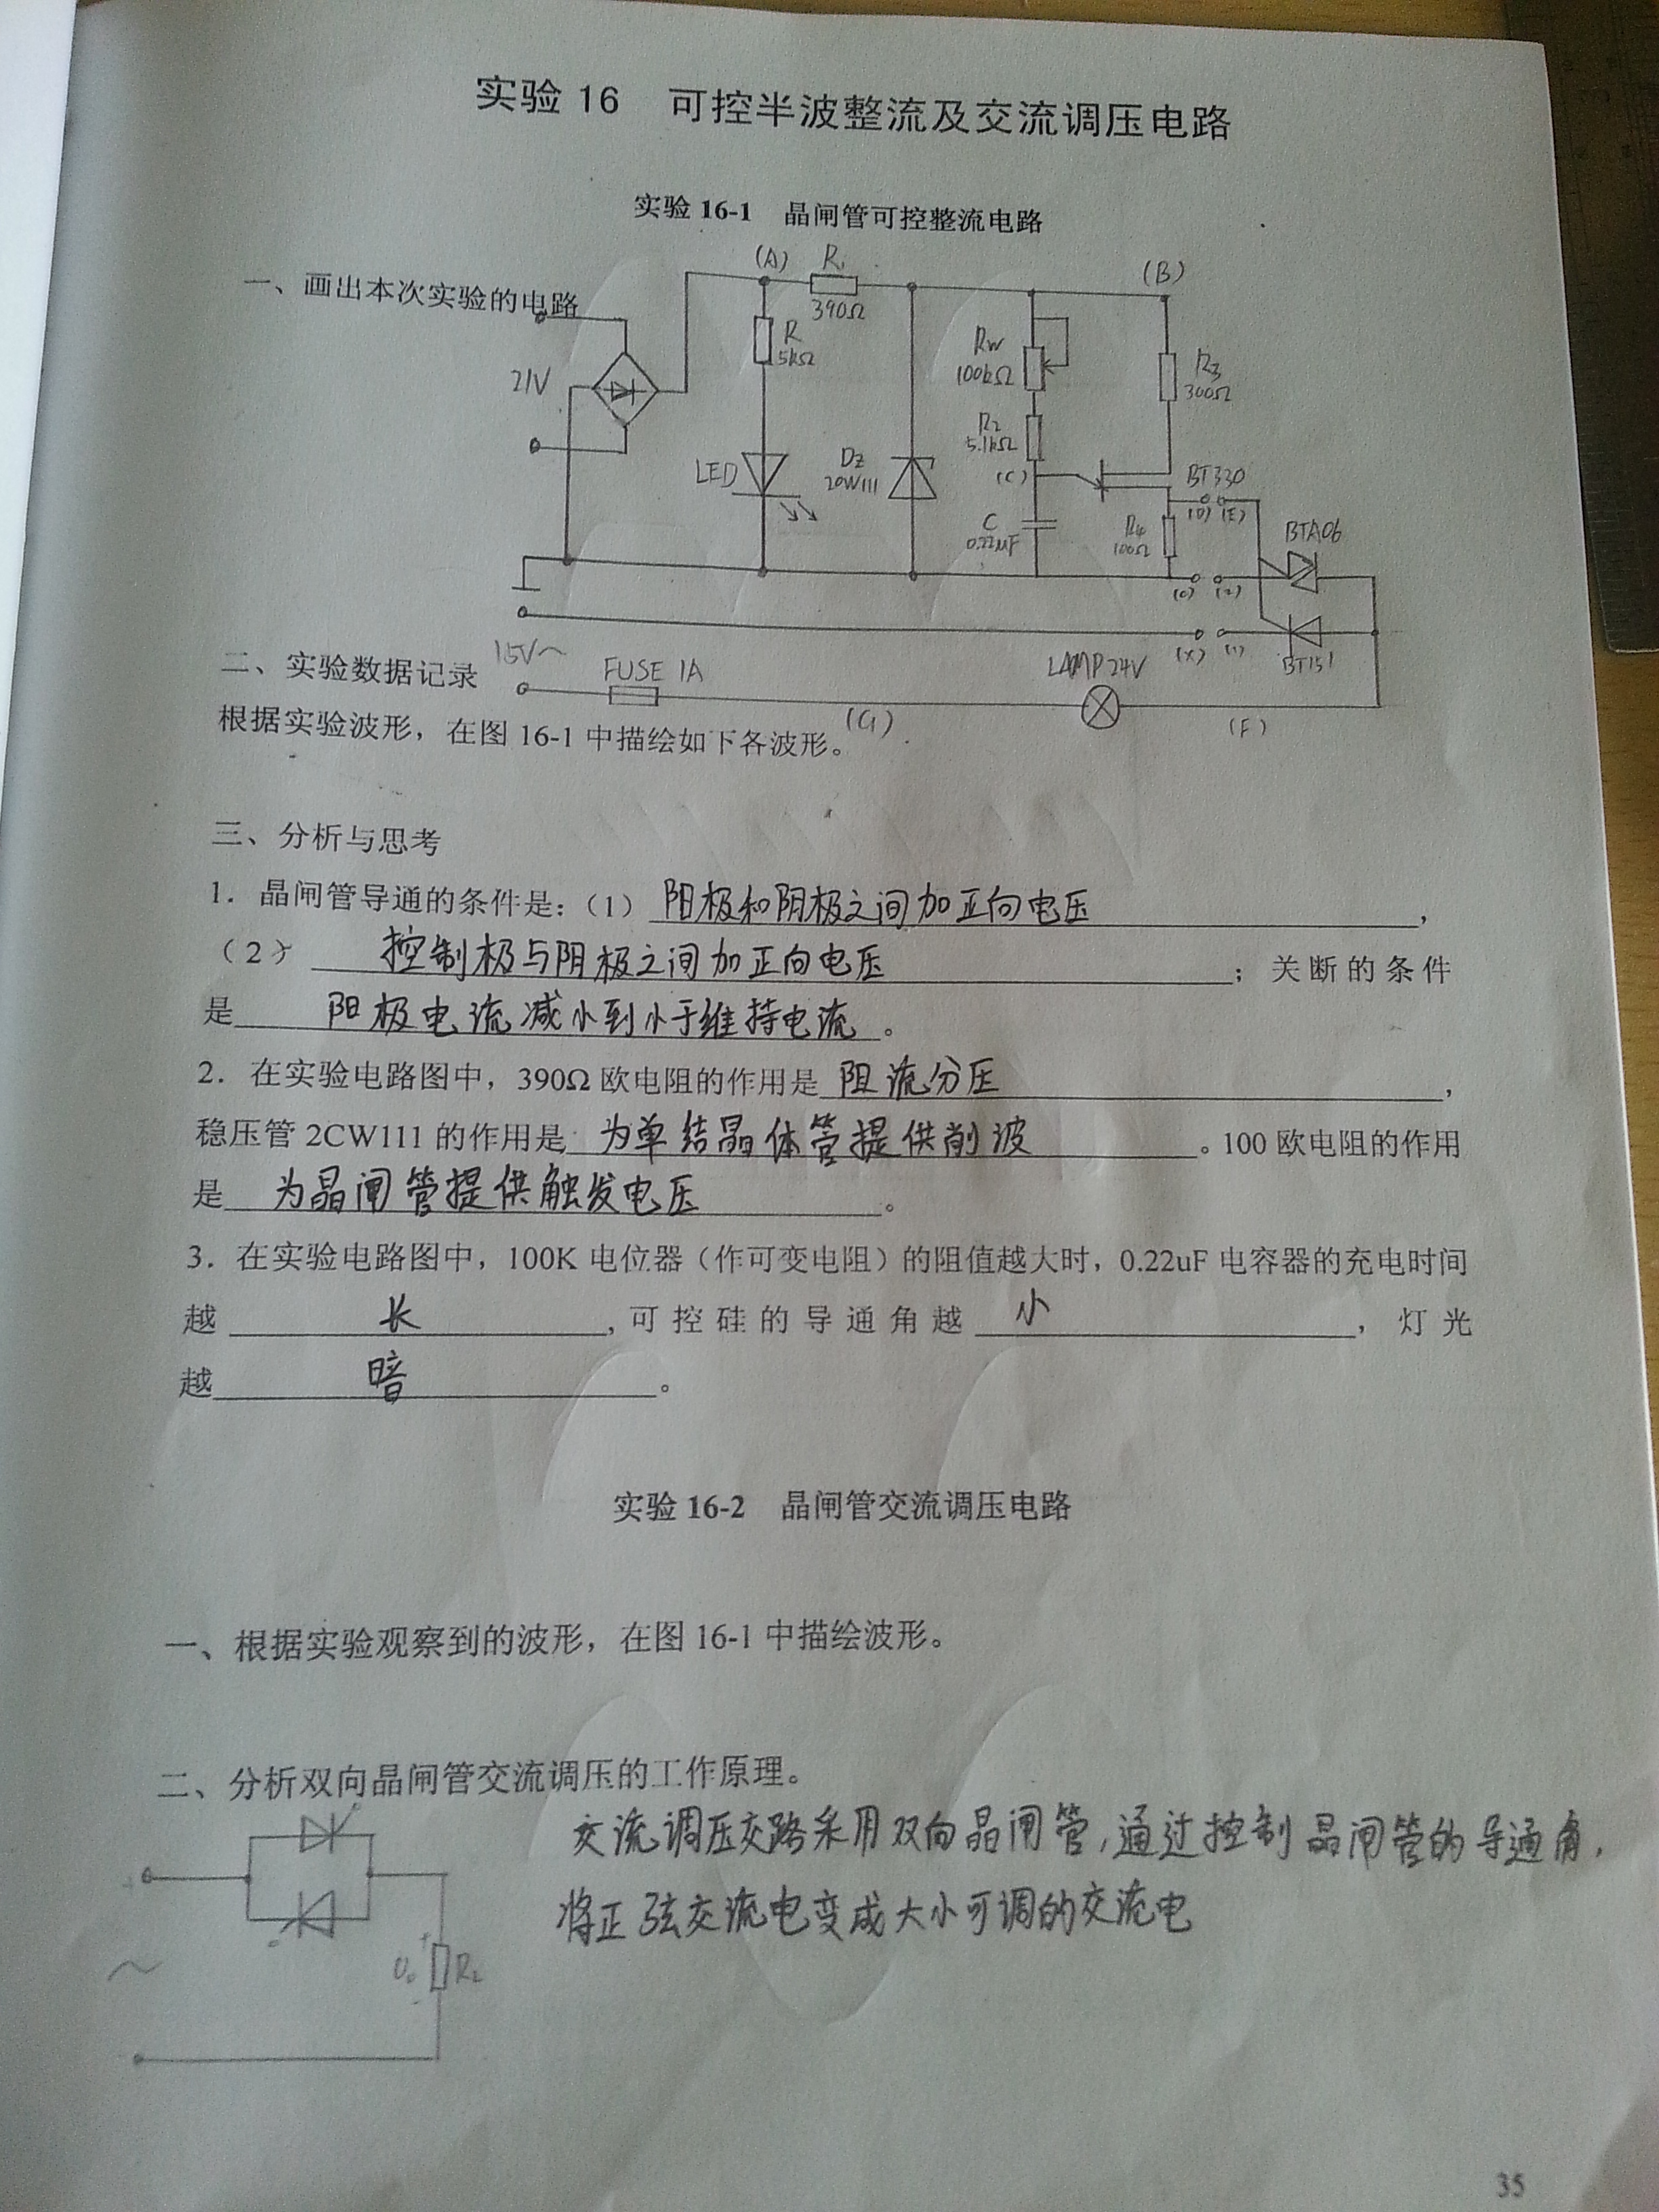 实验 16 可控半波整流及交流调压电路
实验 16-1 晶闸管可控整流电路
一、画出本次实验的电路
(A) R₁ (B)
390Ω
21V
R
5kΩ
Rw
100kΩ
R3
300Ω
R2
5.1kΩ
LED
Dz
20W111
(C)
BT330
(D) (E)
C
0.22μF
R4
100Ω
BTA06
(O) (2)
15V~
FUSE 1A
LAMP 24V
(X) (1)
BT151
(G)
(F)
二、实验数据记录
根据实验波形，在图 16-1 中描绘如下各波形。
三、分析与思考
1．晶闸管导通的条件是：（1）阳极和阴极之间加正向电压，
（2）控制极与阴极之间加正向电压；关断的条件
是阳极电流减小到小于维持电流。
2．在实验电路图中，390Ω 欧电阻的作用是阻流分压，
稳压管 2CW111 的作用是为单结晶体管提供削波。100 欧电阻的作用
是为晶闸管提供触发电压。
3．在实验电路图中，100K 电位器（作可变电阻）的阻值越大时，0.22uF 电容器的充电时间
越长，可控硅的导通角越小，灯光
越暗。
实验 16-2 晶闸管交流调压电路
一、根据实验观察到的波形，在图 16-1 中描绘波形。
二、分析双向晶闸管交流调压的工作原理。
交流调压交路采用双向晶闸管，通过控制晶闸管的导通角，
将正弦交流电变成大小可调的交流电
~
+
U₀ RL
35